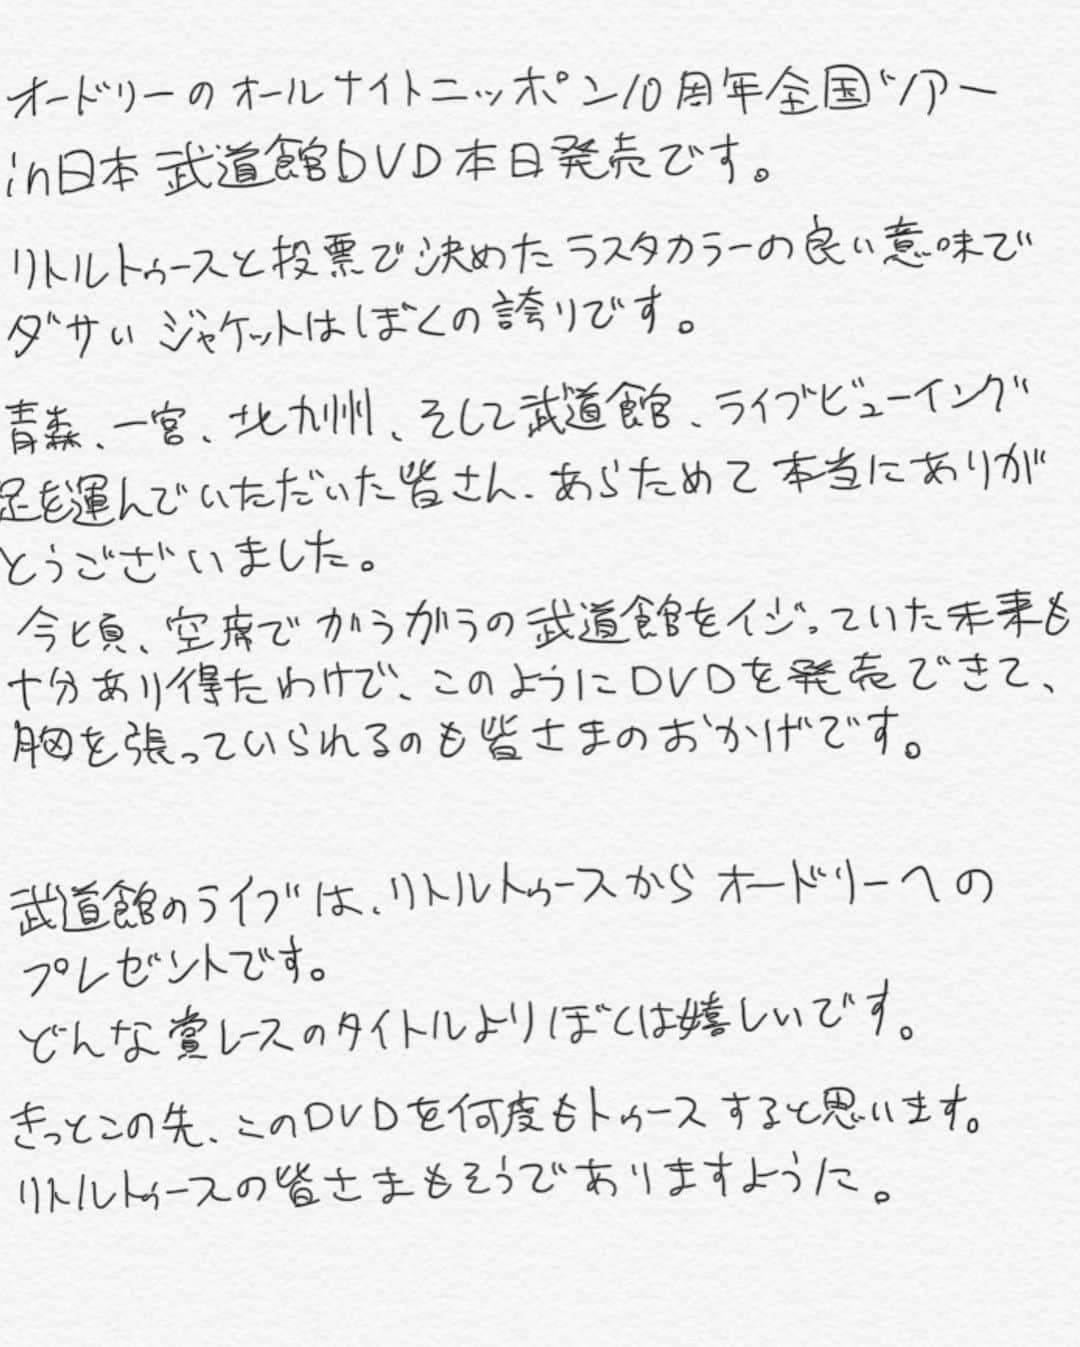 オードリーのオールナイトニッポン10周年全国ツアー
in日本武道館DVD本日発売です。
リトルトゥースと投票で決めたラスタカラーの良い意味で
ダサいジャケットはぼくの誇りです。
青森、一宮、北九州、そして武道館、ライブビューイング
足を運んでいただいた皆さん、あらためて本当にありが
とうございました。
今ヒ頃、空席でがらがらの武道館をイジっていた未来も
十分あり得たわけで、このようにDVDを発売できて、
胸を張っていられるのも皆さまのおかげです。
武道館のライブは、リトルトゥースからオードリーへの
プレゼントです。
どんな賞レースのタイトルよりぼくは嬉しいです。
きっとこの先、このDVDを何度もトゥースすると思います。
リトルトゥースの皆さまもそうでありますように。